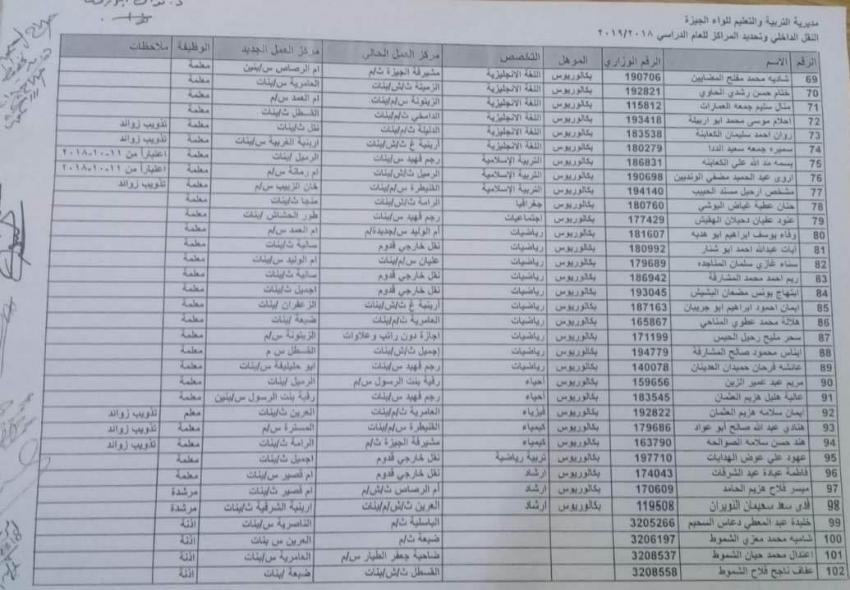 مديرية التربية والتعليم للواء الجيزة
النقل الداخلي وتحديد المراكز للعام الدراسي ٢٠١٩/٢٠١٨
الرقم الاسم الرقم الوزاري الموهل التخصص مركز العمل الحالي مركز العمل الجديد الوظيفة ملاحظات
69 شاديه محمد مفلح المضايين 190706 بكالوريوس اللغة الانجليزية مشيرفة الجيزة ث/م ام الرصاص س/بنين معلمة
70 ختام حسن رشدي الحاوي 192821 بكالوريوس اللغة الانجليزية الزميلة ث/ش/بنات العامرية س/بنات معلمة
71 منال سليم جمعه العمارات 115812 بكالوريوس اللغة الانجليزية الزيتونة س/م/بنات ام العمد س/م معلمة
72 احلام موسى محمد ابو اربيلة 193418 بكالوريوس اللغة الانجليزية الدامخي ث/م/بنات القسطل ث/بنات معلمة
73 روان احمد سليمان الكعابنة 183538 بكالوريوس اللغة الانجليزية الدليلة ث/م/بنات نتل ث/بنات معلمة تذويب زوائد
74 سميره جمعه سعيد الددا 180279 بكالوريوس اللغة الانجليزية أرينبة غ ث/ش/بنات ارينبة الغربية س/بنات معلمة تذويب زوائد
75 بسمه مد الله علي الكعابنه 186831 بكالوريوس التربية الإسلامية رجم فهيد س/بنات الرميل /بنات معلمة اعتباراً من ١١-١٠-٢٠١٨
76 اروى عبد الحميد مضفي الونديين 190698 بكالوريوس التربية الإسلامية الرميل ث/ش/بنات ام رمانة س/م معلمة اعتباراً من ١١-١٠-٢٠١٨
77 مشخص ارحيل مسند الحبيب 194140 بكالوريوس التربية الإسلامية القنيطرة س/م/بنات خان الزبيب س/م معلمة تذويب زوائد
78 حنان عطية غياض البوشي 180760 بكالوريوس جغرافيا الرامة ث/ش/بنات منجا ث/بنات معلمة
79 عنود عطيان دحيلان الهقيش 177429 بكالوريوس اجتماعيات رجم فهيد س/بنات طور الحشاش /بنات معلمة
80 وفاء يوسف ابراهيم ابو هديه 181607 بكالوريوس رياضيات ام الوليد س/جديدة/م ام العمد س/م معلمة
81 آيات عبدالله احمد ابو شنار 180992 بكالوريوس رياضيات نقل خارجي قدوم سالية ث/بنات معلمة
82 سناء غازي سلمان المناجده 179689 بكالوريوس رياضيات عليان س/م/بنات ام الوليد س/بنات معلمة
83 ريم احمد محمد المشارقة 186942 بكالوريوس رياضيات نقل خارجي قدوم سالية ث/بنات معلمة
84 ابتهاج يونس مضعان البشيش 193045 بكالوريوس رياضيات نقل خارجي قدوم اجميل ث/بنات معلمة
85 ايمان احمود ابراهيم ابو جريبان 187163 بكالوريوس رياضيات أرينبة غ ث/ش/بنات الزعفران /بنات معلمة
86 هلالة محمد عطوي المناحي 165867 بكالوريوس رياضيات العامرية ث/م/بنات ضبعة /بنات معلمة
87 سحر مليح رحيل الحيس 171199 بكالوريوس رياضيات اجازة دون راتب وعلاوات الزيتونة س/م معلمة
88 ايناس محمود صالح المشارقة 194779 بكالوريوس رياضيات اجميل ث/ش/بنات القسطل س م معلمة
89 عائشه فرحان حميدان العدينان 140078 بكالوريوس رياضيات رجم فهيد س/بنات ابو حليليفة س/بنات معلمة
90 مريم عبد عمير الزين 159656 بكالوريوس احياء رقية بنت الرسول س/م الرميل /بنات معلمة
91 عالية هليل هزيم العثمان 183545 بكالوريوس احياء رجم فهيد س/بنات رقية بنت الرسول س/بنين معلمة
92 ايمان سلامه هزيم العثمان 192822 بكالوريوس فيزياء العامرية ث/م/بنات العرين ث/بنات معلم تذويب زوائد
93 هنادي عبد الله صالح ابو عواد 179686 بكالوريوس كيمياء القنيطرة س/م/بنات المسترة س/م معلمة تذويب زوائد
94 هند حسن سلامه الصوالحه 163790 بكالوريوس كيمياء مشيرفة الجيزة ث/م الرامة ث/بنات معلمة تذويب زوائد
95 عهود علي عوض الهدايات 197710 بكالوريوس تربية رياضية نقل خارجي قدوم اجميل ث/بنات معلمة
96 فاطمة عبادة عيد الشرفات 174043 بكالوريوس ارشاد نقل خارجي قدوم ام قصير س/بنات معلمة
97 ميسر فلاح هزيم الحامد 170609 بكالوريوس ارشاد أم الرصاص ث/ش/م ام قصير ث/بنات مرشدة
98 فدى سعد سحيمان النويران 119508 بكالوريوس ارشاد العرين ث/ش/م/بنات ارينبة الشرقية ث/بنات مرشدة
99 خليدة عبد المعطي دعاس السحيم 3205266 الباسلية ث/م الناصرية س/بنات اذنة
100 شاميه محمد معزي الشموط 3206197 ضبعة ث/م العرين س بنات اذنة
101 اعتدال محمد حيان الشموط 3208537 ضاحية جعفر الطيار س/م العامرية س/بنات اذنة
102 عفاف ناجح فلاح الشموط 3208558 القسطل ث/ش/بنات ضبعة /بنات اذنة